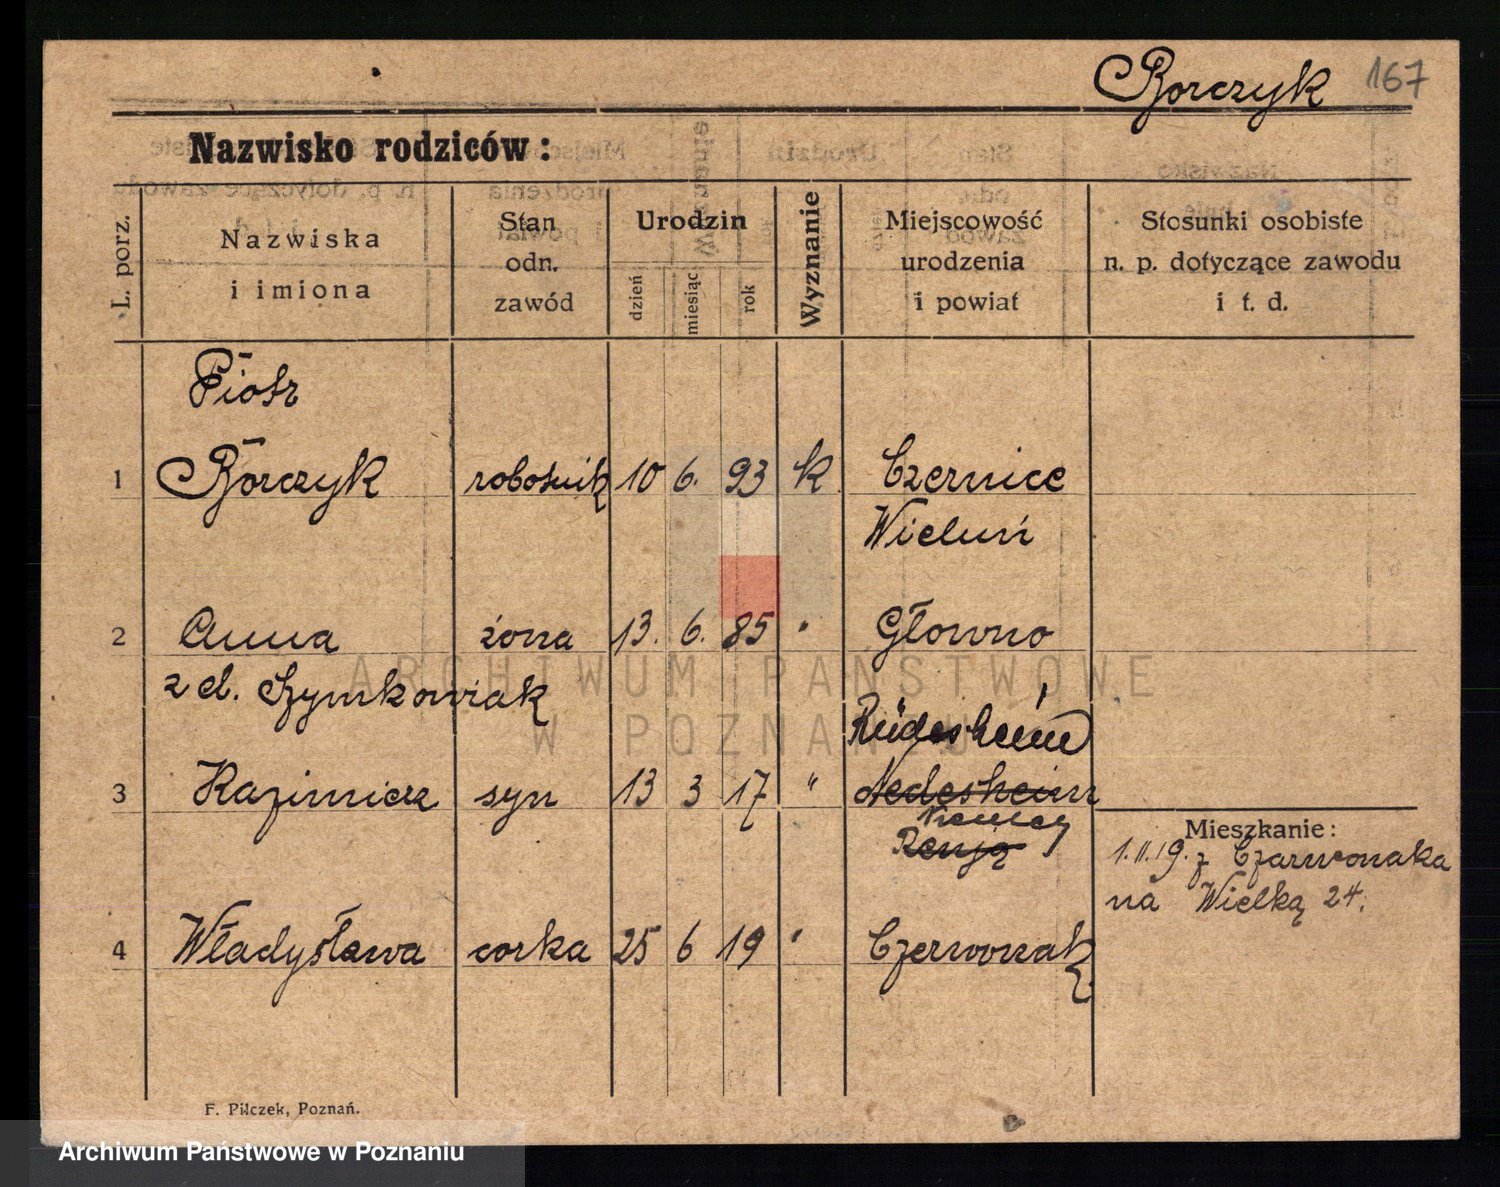 Borczyk 167
Nazwisko rodziców:
L. porz.
Nazwiska
i imiona
Stan
odn.
zawód
Urodzin
dzień
miesiąc
rok
Wyznanie
Miejscowość
urodzenia
i powiat
Stosunki osobiste
n. p. dotyczące zawodu
i t. d.
Piotr
1 Borczyk robotnik 10 6. 93 k Czernice
Wieluń
2 Anna żona 13. 6. 85 " Głowno
z d. Szymkowiak
Rüdesheim
3 Kazimierz syn 13 3 17 " Nedesheim
Niemcy
Mieszkanie:
1.11.19. z Czarwonaka
na Wielką 24.
4 Władysława corka 25 6 19 " Czerwonak
F. Pilczek, Poznań.
ARCHIWUM PAŃSTWOWE
W POZNANIU
Archiwum Państwowe w Poznaniu